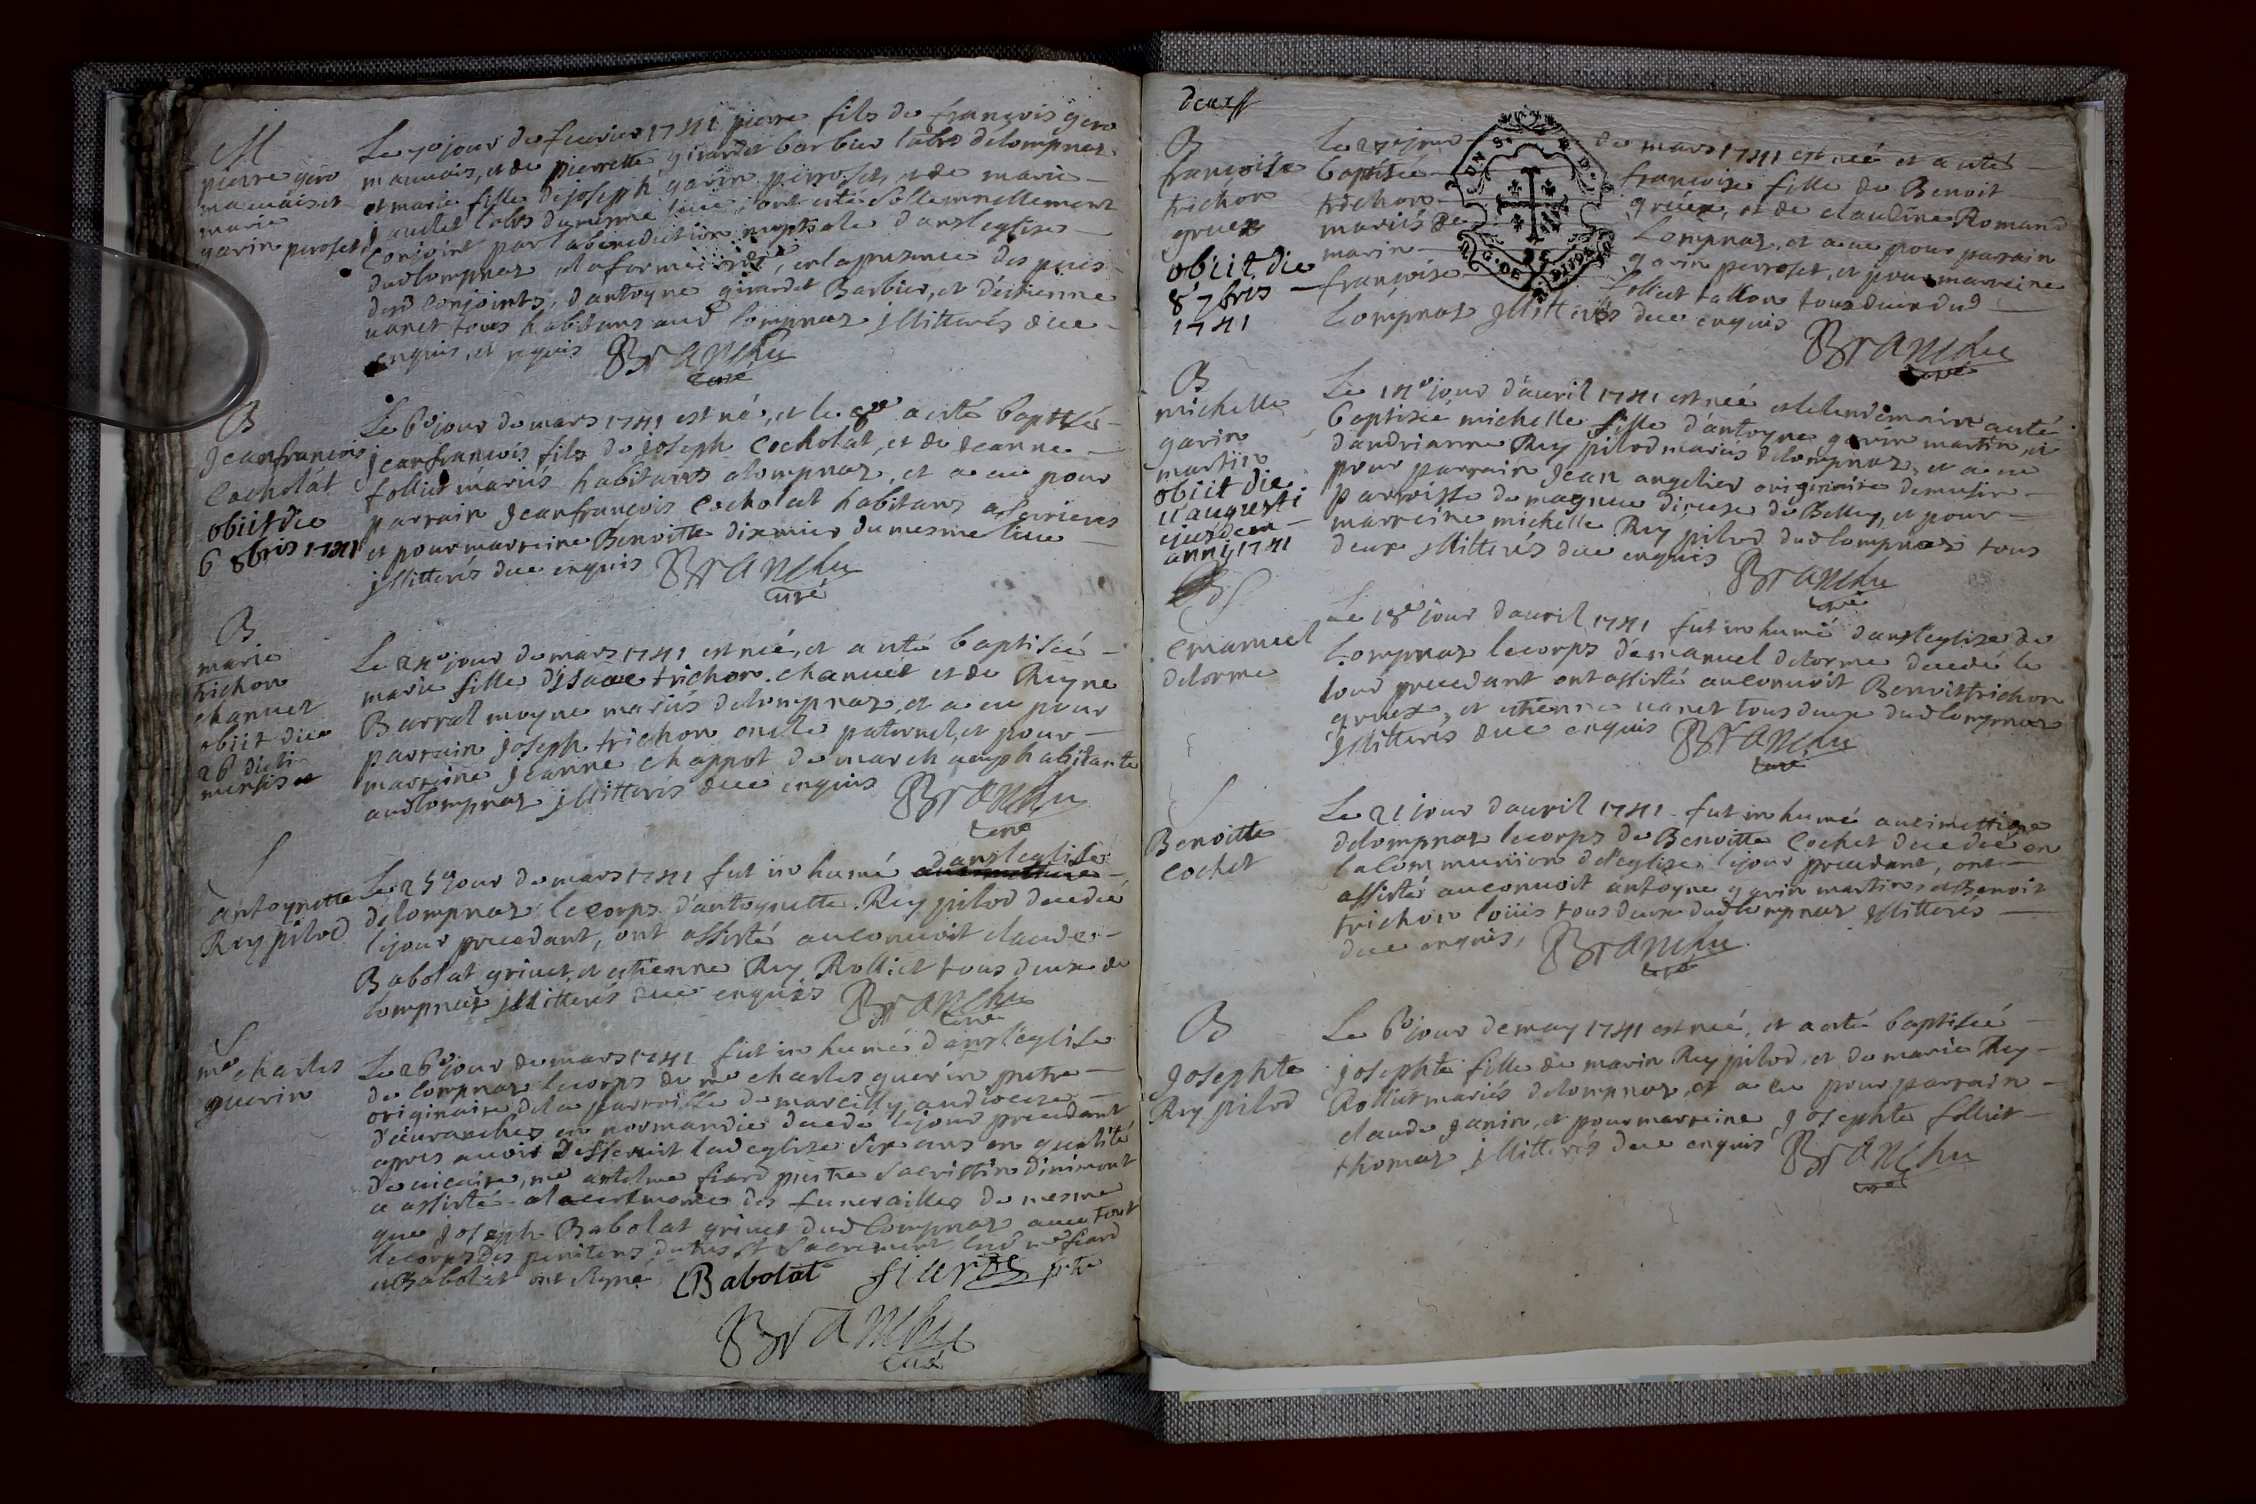 M
pierre gero
mauuais et
marie
garin peroset
Le 7e jour de feurier 1741 pierre fils de françois gero
mauuais, et de pierrette girardet barbier labrs de lompnaz
et marie fille de joseph garin perroset, et de marie
labrs du mesme lieu, ont esté sollemnellement
conjoint par la benediction nuptiale dans l'eglise
dud lompnaz, en la presence des peres
desd conjoints, d'antoyne girardet Barbier, et d'estienne
uanet tous habitans aud lompnaz jllitterés de ce
enquis, et requis Branchu
curé
B
Jeanfrancois
Cocholat
obiit die
6 8bris 1741
Le 6e jour de mars 1741 est né, et le 8e a esté baptisé
jeanfrancois fils de joseph Cocholat, et de jeanne
folliet mariés habitants a lompnaz, et a eu pour
parrain jeanfrançois Cocholat habitans a serrieres
et pour marreine Benoitte diximier du mesme lieu
jllitterés de ce enquis Branchu
curé
B
marie
trichon
chanuet
obiit die
26 dicti
mensis
Le 24e jour de mars 1741 est née, et a esté baptisée
marie fille d'jsaac trichon chanuet et de Reyne
Barral moyne mariés de lompnaz, et a eu pour
parrain joseph trichon oncle paternel, et pour
marreine jeanne chappot de marchamp habitante
aud lompnaz jllitterés de ce enquis Branchu
curé
S
antoynette
Rey pilod
Le 25e jour de mars 1741 fut inhumé dans l'eglise
de lompnaz le corps d'antoynette Rey pilod decedée
le jour precedant, ont assisté au conuoit claude
Babolat griuet, et estienne Rey Rolliet tous deux de
lompnaz jllitterés de ce enquis Branchu
curé
S
me charles
guerin
Le 26e jour de mars 1741 fut inhumé dans l'eglise
de lompnaz le corps de me charles guerin pretre
originaire de la parroisse de marcilly au dioceze
d'auranches en normandie decedé le jour precedant
apres auoir desseruit lad eglize six ans en qualité
de vicaire, me antelme fiard prestre sacristin d'inimont
a assisté a la ceremonie des funerailles de mesme
que joseph Babolat griuet dud lompnaz auec tout
le corps des penitens du tres st sacrement led me fiard
et Babolat ont signé Babolat fiard ptre
Branchu
curé
deux
B
francoise
trichon
gruex
obiit die
8e 7bris
1741
Le 27e jour de mars 1741 est née et a esté
baptisée françoise fille de Benoit
trichon gruex, et de claudine Romand
mariés de lompnaz, et a eu pour parrain
marin garin perroset, et pour marreine
françoise folliet tallon tous deux dud
lompnaz jllitterés de ce enquis
Branchu
curé
B
michelle
garin
martin
obiit die
11 augusti
ejusdem
anni 1741
Le 14e jour d'auril 1741 est née et le lendemain a esté
baptisée michelle fille d'antoyne garin martin, et
d'andrianne Rey pilod mariés de lompnaz, et a eu
pour parrain jean angelier originaire de
parroisse de magnieu dioceze de Belley, et pour
marreine michelle Rey pilod dud lompnaz tous
deux jllitterés de ce enquis Branchu
curé
S
emanuel
delorme
Le 18e jour d'auril 1741 fut inhumé dans l'eglize de
lompnaz le corps d'emanuel delorme decedé le
jour precedant ont assisté au conuoit Benoit trichon
gruex, et estienne uanet tous deux dud lompnaz
jllitterés de ce enquis Branchu
curé
S
Benoitte
cochet
Le 21 jour d'auril 1741 fut inhumé au cimettiere
de lompnaz le corps de Benoitte Cochet decedée en
la communion de l'eglize le jour precedant, ont
assisté au conuoit antoyne garin martin, et Benoit
trichon loüis tous deux dud lompnaz jllitterés
de ce enquis, Branchu
curé
B
Josephte
Rey pilod
Le 6e jour de may 1741 est née, et a esté baptisée
josephte fille de marin Rey pilod, et de marie Rey
Rolliet mariés de lompnaz, et a eu pour parrain
claude janin, et pour marreine josephte folliet
thomaz jllitterés de ce enquis Branchu
curé